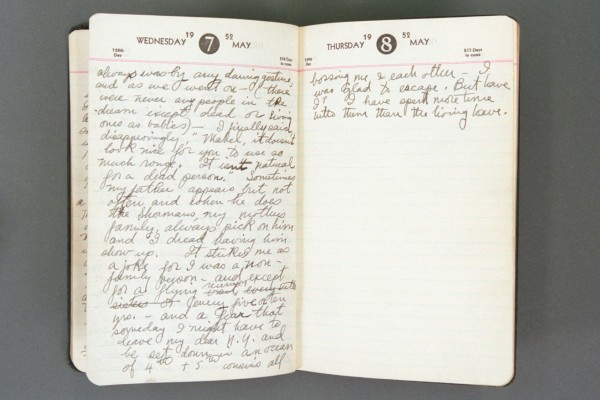 WEDNESDAY 19 7 52 MAY
128th Day
238 Days to come
always was by any daring gesture,
and as we went on - (there
were never any people in the
dream except dead or living
ones as babies) - I finally said
disapprovingly "Mabel, it doesn't
look nice for you to use so
much rouge. It isn't natural
for a dead person." Sometimes
my father appears but not
often and when he does
the Shermans, my mothers
family, always pick on him
and I dread having him
show up. It strikes me as
a joke for I was a non-
family person - and except
for a flying visit every
sister of Jeremy five or ten
yrs. - and a fear that
someday I might have to
leave my dear N.Y. and
be set down in an ocean
of 4th + 5th cousins all
THURSDAY 19 8 52 MAY
129th Day
237 Days to come
bossing me & each other - I
was glad to escape. But have
I? I have spent more time
with them than the living have.